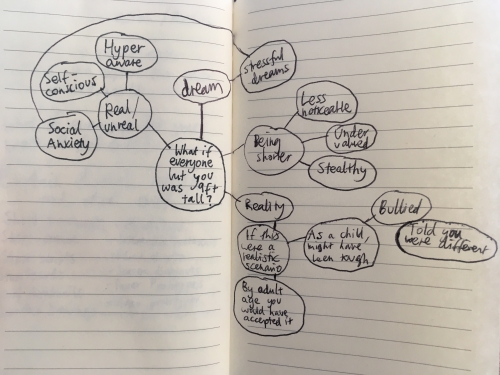 Hyper
aware
Self-
conscious
Real/
unreal
Social
Anxiety
dream
stressful
dreams
What if
everyone
but you
was 9ft
tall?
Being
shorter
Less
noticeable
Under
valued
Stealthy
Reality
If this
were a
realistic
scenario
As a child,
might have
been tough
Bullied
Told you
were different
By adult
age you
would have
accepted it